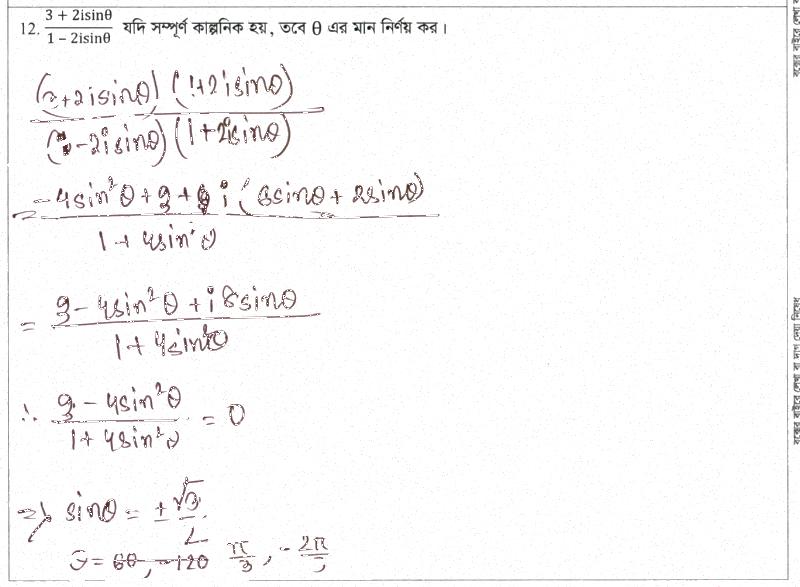 12. (3 + 2isinθ)/(1 − 2isinθ) যদি সম্পূর্ণ কাল্পনিক হয়, তবে θ এর মান নির্ণয় কর।
((3+2isinθ) (1+2isinθ))/((1−2isinθ) (1+2isinθ))
= (−4sin²θ + 3 + i (6sinθ + 2sinθ))/(1 + 4sin²θ)
= (3 − 4sin²θ + i 8sinθ)/(1 + 4sin²θ)
∴ (3 − 4sin²θ)/(1 + 4sin²θ) = 0
⇒ sinθ = ± √3/2
θ = 60, −120 π/3, − 2π/3
বক্সের বাইরে লেখা বা দাগ দেয়া নিষেধ